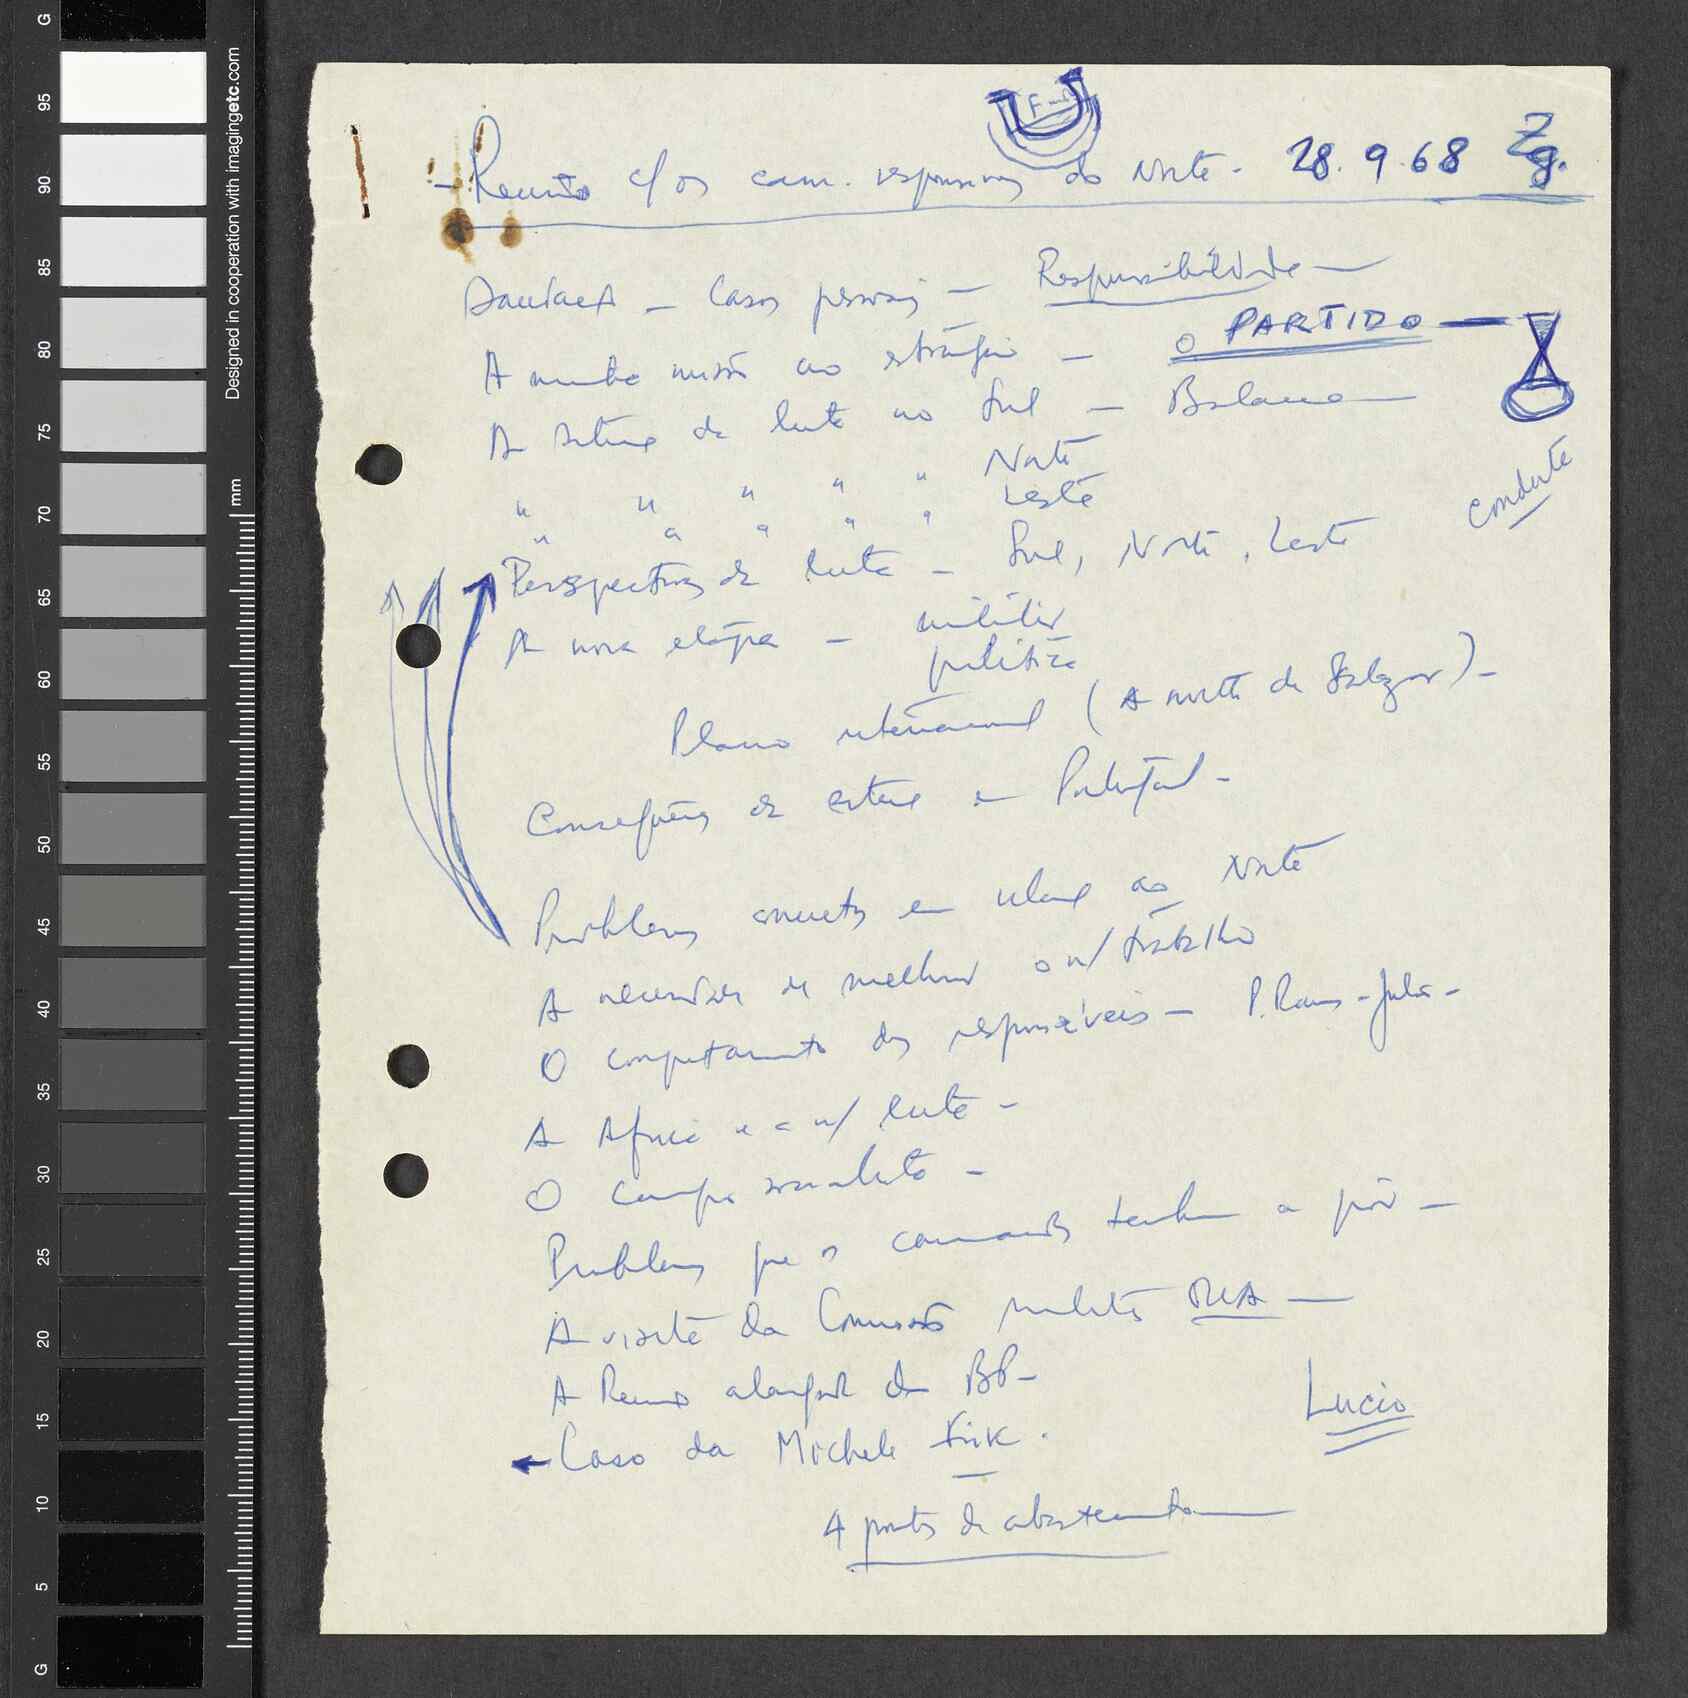 - Reunião c/ os cam. responsáveis do Norte - 28.9.68 Zg.
Saudação - Casos pessoais - Responsabilidade -
A minha missão ao estrangeiro - O PARTIDO -
A situação da luta no Sul - Balanço -
" " " " " Norte
" " " " " Leste
conduta
Perspectivas da luta - Sul, Norte, Leste
A nova etapa - militar
política
Plano internacional (A morte de Salazar) -
Consequências da em Portugal -
Problemas concretos em relação ao Norte
A necessidade de melhorar o n/ trabalho
O comportamento dos responsáveis - P. Ramos - Julio -
A Africa e a n/ luta -
O campo socialista -
Problemas que os camaradas tenham a pôr -
A visita da Comissão militar OUA -
A Reunião alargada do BP -
Lucio
Caso da Michele Fink.
4 pontos de abastecimento
G
95
90
85
80
75
70
65
60
55
50
45
40
35
30
25
20
15
10
5
G
mm
Designed in cooperation with imagingetc.com